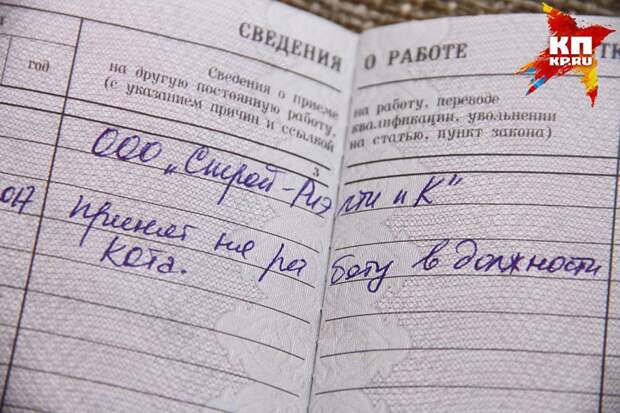 СВЕДЕНИЯ О РАБОТЕ
КП
KP.RU
год
Сведения о приеме на работу, переводе
на другую постоянную работу, квалификации, увольнении
(с указанием причин и ссылкой на статью, пункт закона)
3
ООО „Строй-Риэлти и К"
017 принят на работу в должности
Кота.